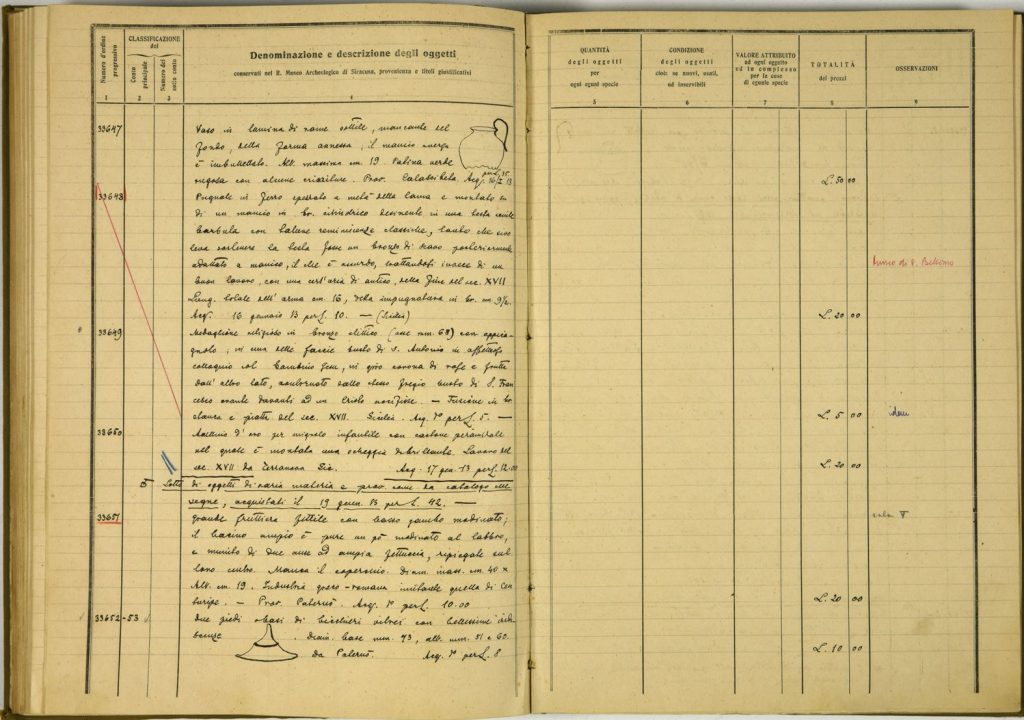 Numero d'ordine progressivo
CLASSIFICAZIONE del
Conto principale
Numero del sotto conto
Denominazione e descrizione degli oggetti
conservati nel R. Museo Archeologico di Siracusa, provenienza e titoli giustificativi
1 2 3 4
33647 Vaso in lamina di rame sottile, mancante del
fondo, della forma annessa; il manico
è imbullettato. Alt. massima cm. 19. Patina verde
rugosa con alcune. Prov. Calascibetta. Acq. 16/I 13
per L. 35
33648 Pugnale in ferro spezzato a metà della lama e montato su
di un manico in br. cilindrico desinente in una testa
barbula con talune reminiscenze classiche, tanto che
la testa fosse un bronzo di scavo posteriormente
adattato a manico, il che è assurdo, trattandosi invece di un
buon lavoro, con una cert'aria di antico, della fine del sec. XVII
Lung. totale dell'arma cm. 16, della impugnatura in br. cm. 9½.
Acq. 16 gennaio 13 per L. 10. —
33649 Medaglione religioso in bronzo elittico (asse mm. 68) con appic-
cagnolo; in una delle faccie busto di S. Antonio in affettuoso
colloquio col Bambino Gesù, in giro corona di
dall'altro lato, contornato dallo stesso fregio busto di S. Fran
cesco orante davanti ad un Cristo crocifisso. — Fusione in
e piatta del sec. XVII. Sicilia. Acq. per L. 5. —
33650 Anellino d'oro per mignolo infantile con castone piramidale
nel quale è montata una scheggia di brillante. Lavoro del
sec. XVII da Terranova Sic. Acq. 17 gen. 13 per L. 12.00
Lotto di oggetti di varia materia e prov. come da catalogo che
segue, acquistati il 19 genn. 13 per L. 42. —
33651 Grande fruttiera fittile con basso gambo modinato;
il bacino ampio è pure un pò modinato al labbro,
e munito di due anse ad ampia fettuccia, ripiegate sul
loro centro. Manca il coperchio. Diam. mass. cm. 40 ×
Alt. cm. 19. Industria greco-romana imitante quella di Cen
turipe. — Prov. Paternò. Acq. per L. 10.00
33652-53 Due piedi o basi di bicchieri vitrei con bellissime iride
scenze. Diam. base mm. 73, alt. mm. 51 e 60.
da Paternò. Acq. per L. 8
QUANTITÀ
degli oggetti
per
ogni eguali specie
5
CONDIZIONE
degli oggetti
cioè: se nuovi, usati,
od inservibili
6
VALORE ATTRIBUITO
ad ogni oggetto
ed in complesso
per le cose
di eguale specie
7
TOTALITÀ
dei prezzi
8
OSSERVAZIONI
9
L. 50 00
Museo di P. Bellomo
L. 20 00
L. 5 00 idem
L. 20 00
sala V
L. 20 00
L. 10 00